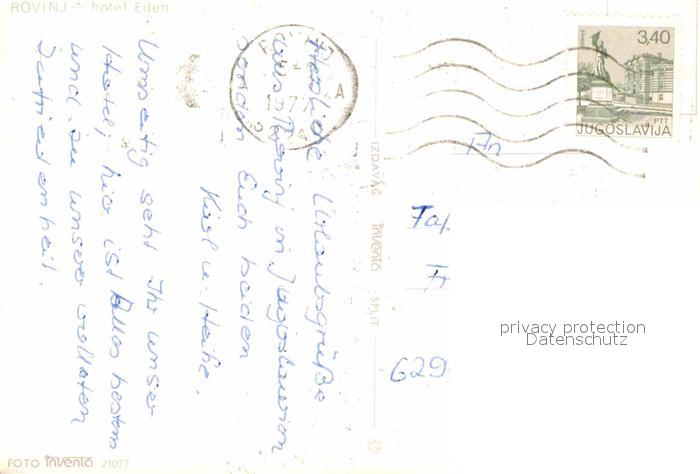 ROVINJ - hotel Eden
Herzliche Urlaubsgrüße
aus Rovinj in Jugoslawien
senden Euch beiden
Karl u. Heike.
Umseitig seht Ihr unser
Hotel, hier ist Alles bestens
und zu unserer vollsten
Zufriedenheit.
FOTO inventa 21077
IZDAVAČ inventa SPLIT
1977
3,40
PTT
JUGOSLAVIJA
An
629
privacy protection
Datenschutz